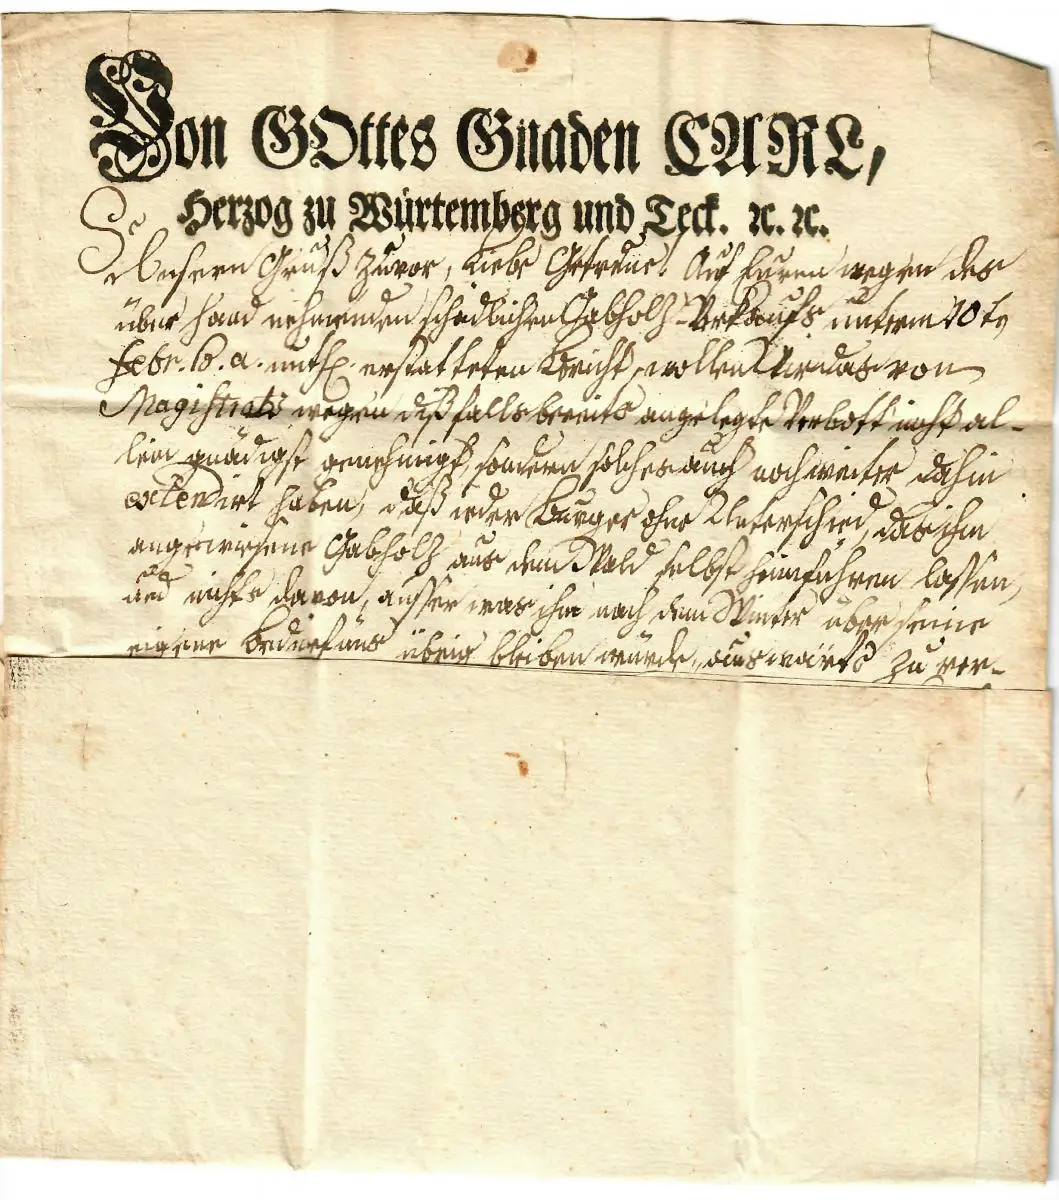 Von GOttes Gnaden CARL,
Herzog zu Würtemberg und Teck. ꝛc. ꝛc.
Unsern Gruß zuvor, Liebe Getreue! Auf Euren wegen des
über hand nehmenden schädlichen Gabholz-Verkaufs unterm 10ten
Febr. h. a. unth. erstatteten Bericht, wollen Wir das von
Magistrats wegen dißfalls bereits angelegte Verbott nicht al-
lein gnädigst genehmigt, sondern solches auch noch weiter dahin
extendirt haben, daß jeder Burger ohne Unterschied, das ihm
angewiesene Gabholz aus dem Wald selbst heimführen lassen,
und nichts davon, ausser was ihm nach dem Winter über seine
eigene Bedürfnus übrig bleiben würde, auswärts zu ver-